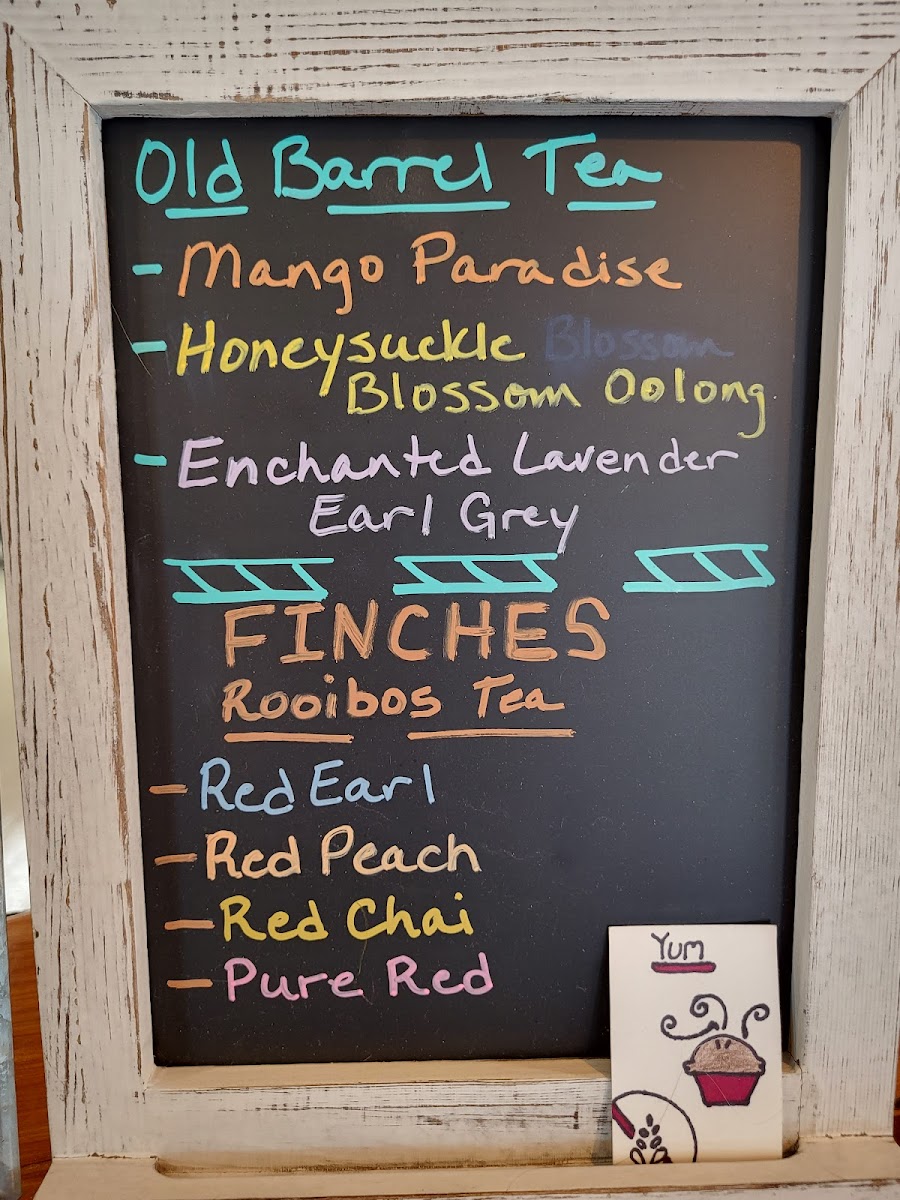 Old Barrel Tea
- Mango Paradise
- Honeysuckle Blossom
Blossom Oolong
- Enchanted Lavender
Earl Grey
FINCHES
Rooibos Tea
- Red Earl
- Red Peach
- Red Chai
- Pure Red
Yum